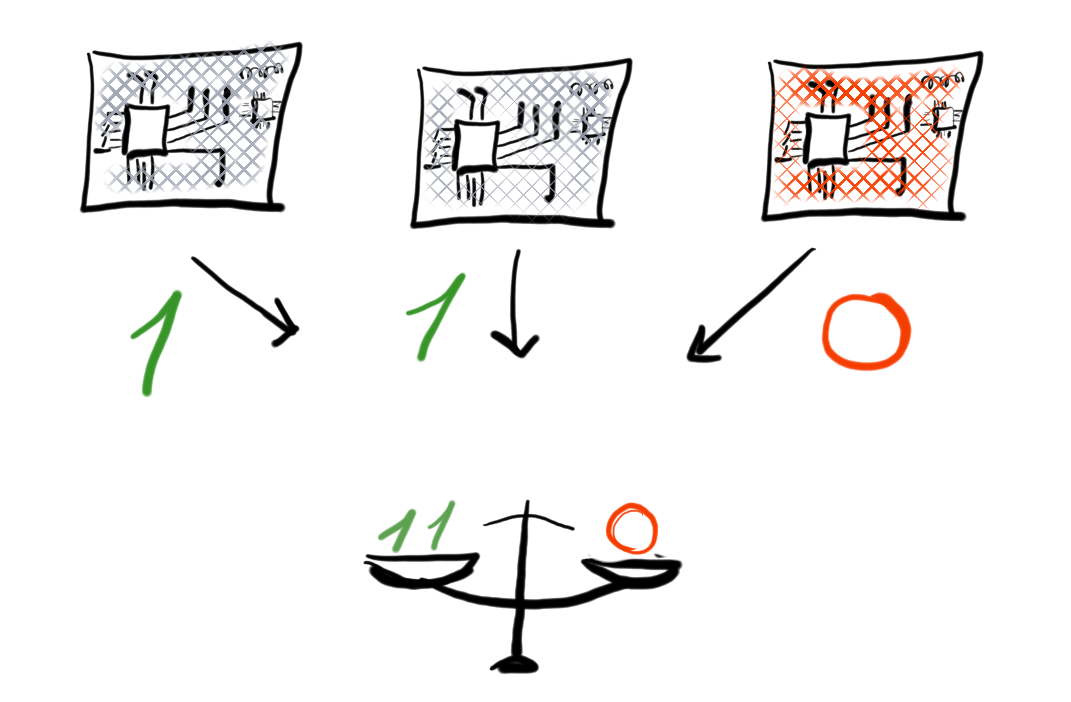 1 1 0
11 0